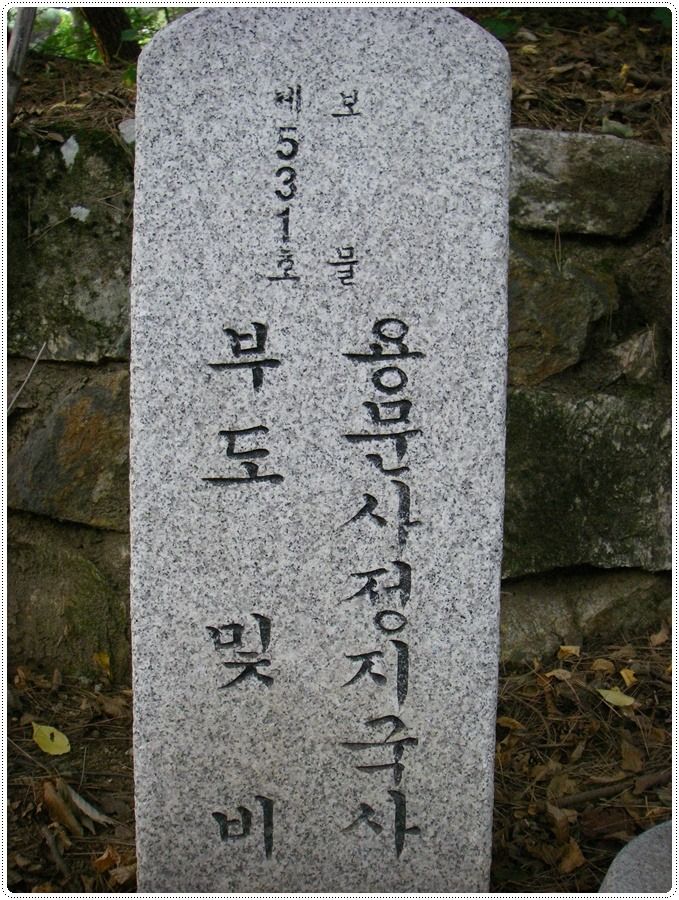 보물
제531호
용문사정지국사
부도 및 비